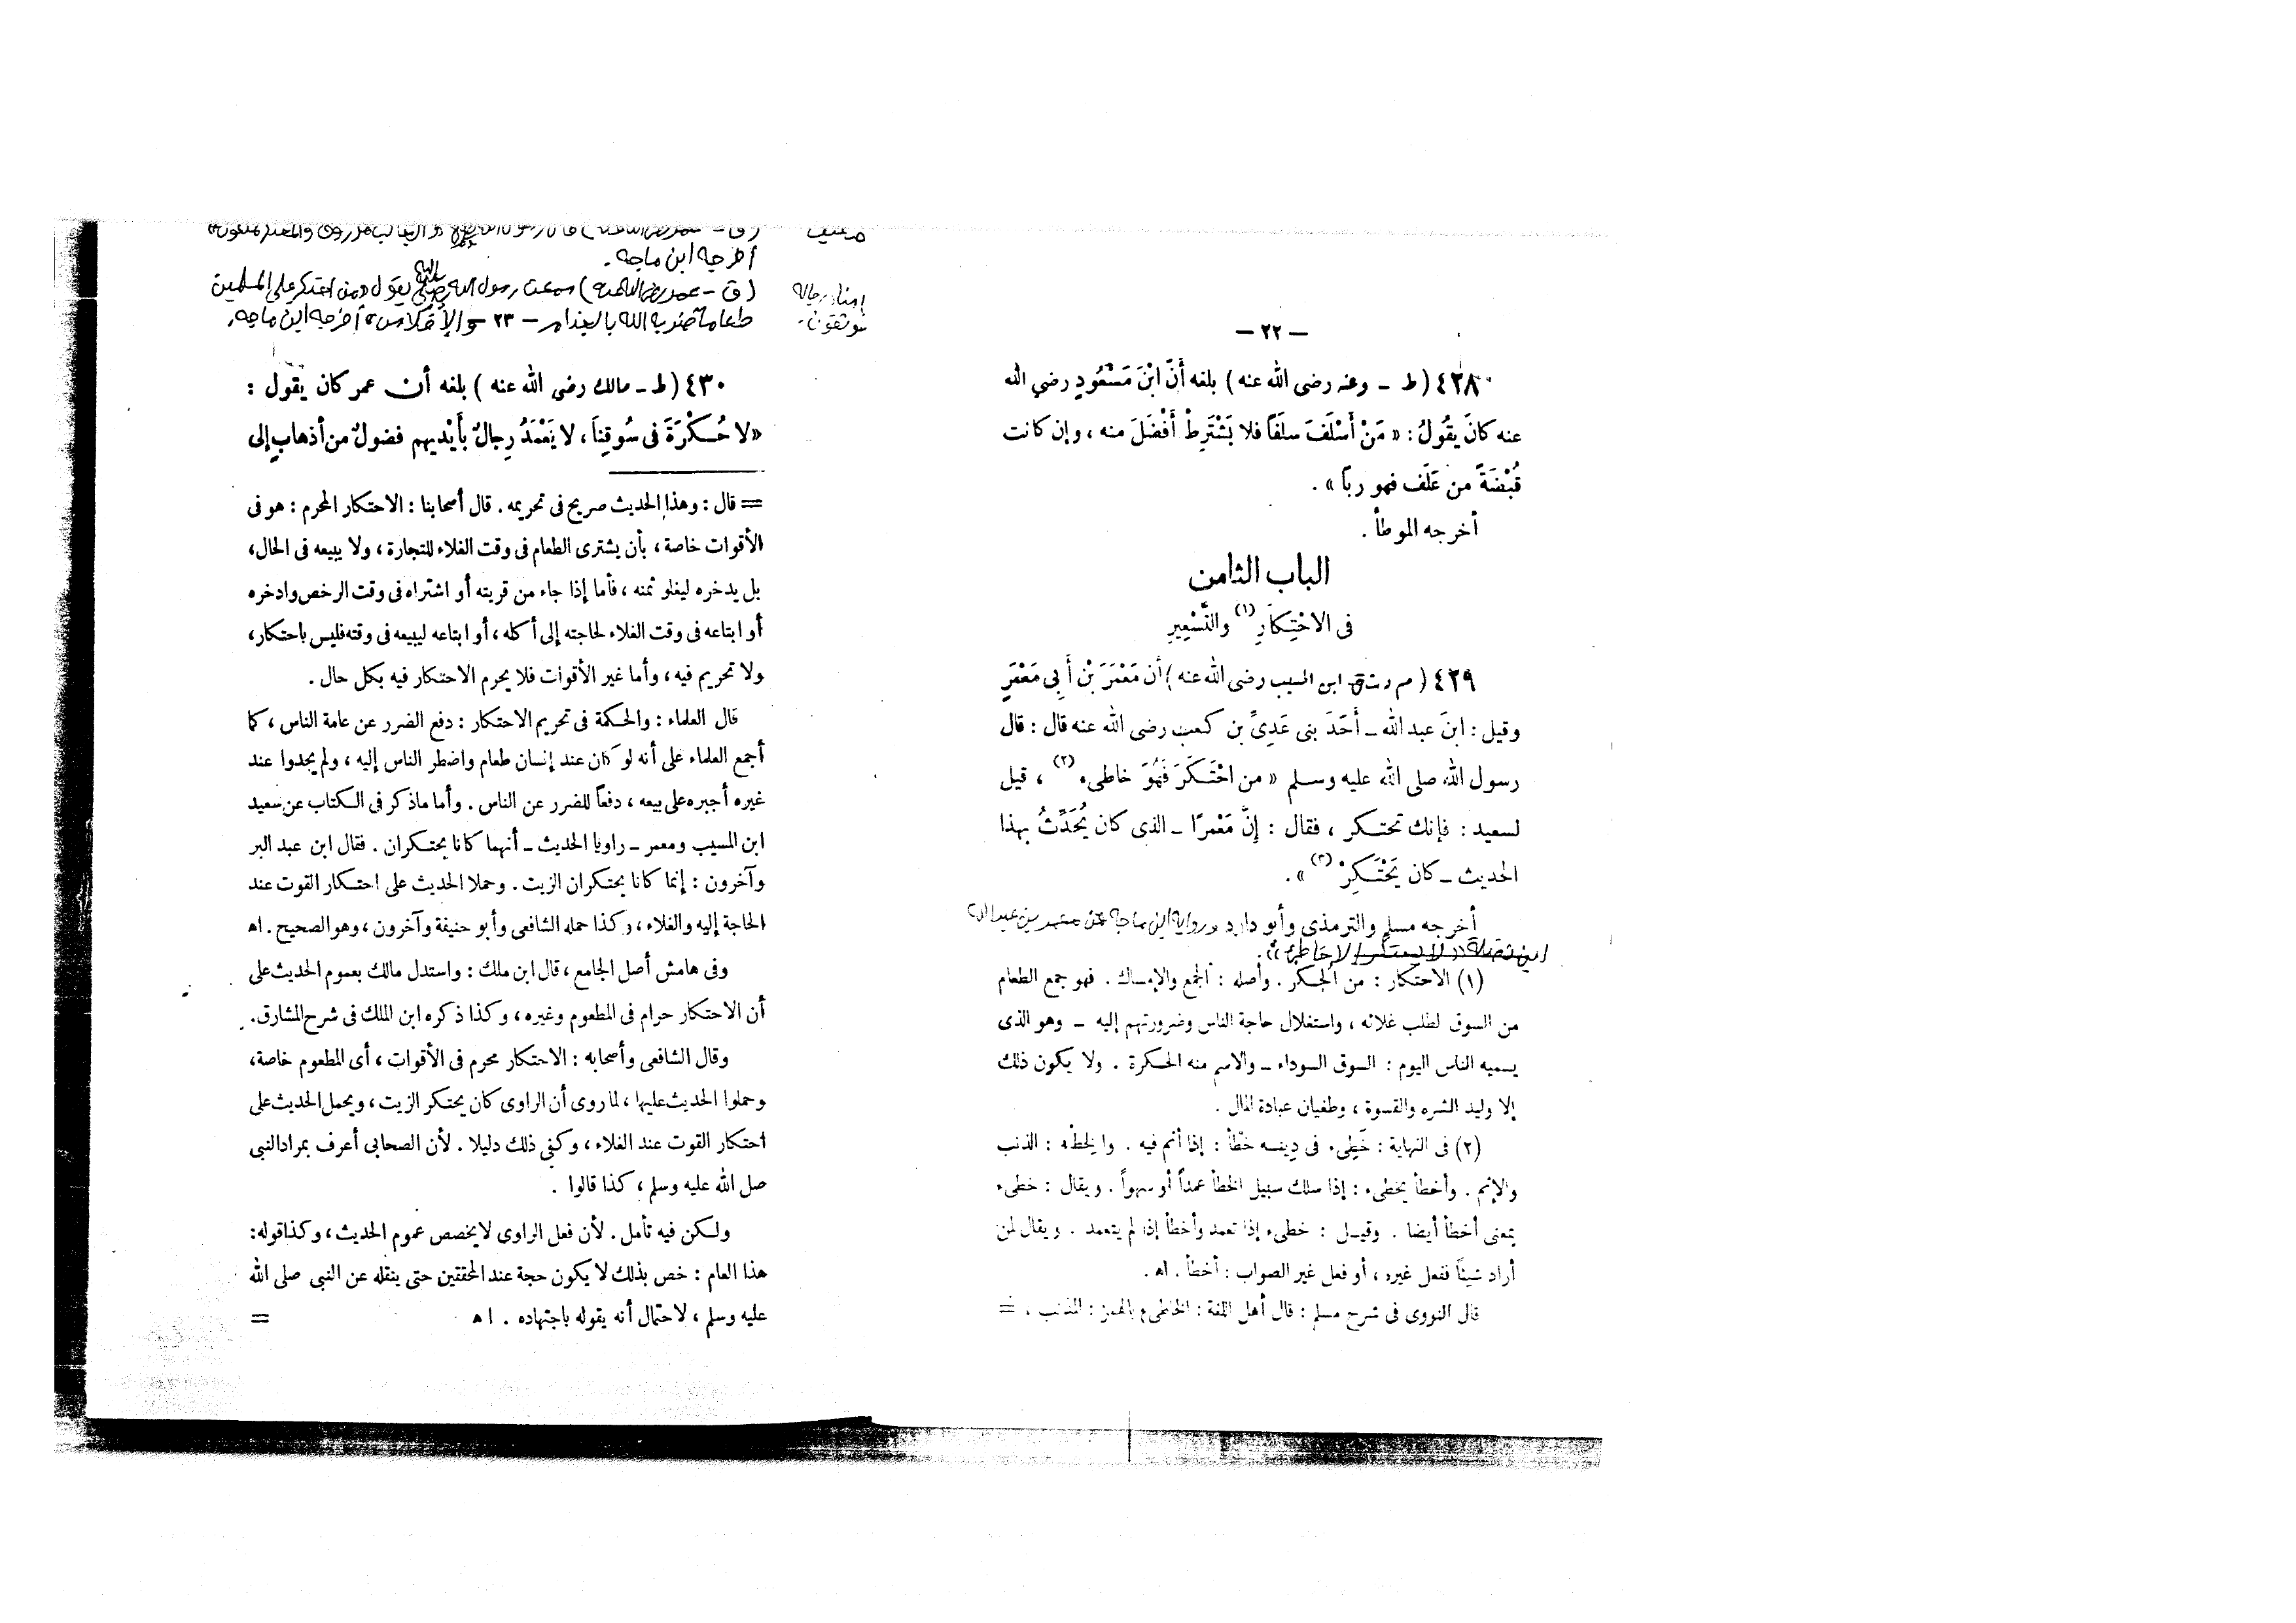 — ٢٢ —
٤٢٨ ( ط ـ وعنه رضى الله عنه ) بلغه أَنَّ ابْنَ مَسْعُودٍ رضي الله
عنه كانَ يقُولُ : « مَنْ أَسْلَفَ سلَفَاً فلا يَشْتَرِطْ أَفْضَلَ منه ، وإن كانت
قُبْضَةً من عَلَف فهو رباً » .
أخرجه الموطأ .
الباب الثامن
فى الاحْتِكَارِ (١) والتَّسْعِيرِ
٤٢٩ ( م د ت ق ابن المسيب رضى الله عنه ) أن مَعْمَرَ بْنَ أَبِى مَعْمَرٍ
وقيل : ابنَ عبد الله ـ أَحَدَ بنى عَدِىِّ بن كعب رضى الله عنه قال : قال
رسول الله صلى الله عليه وسلم « من احْتَكَرَ فَهُوَ خاطىء (٢) ، قيل
لسعيد : فإنك تحتكر ، فقال : إِنَّ مَعْمرًا ـ الذى كان يُحَدِّثُ بهذا
الحديث ـ كان يَحْتَكِرْ (٣) » .
أخرجه مسلم والترمذى وأبو داود ورواية ابن ماجه عن معمر بن عبد الله
ابن نضلة « لا يحتكر إلا خاطئ » .
(١) الاحتكار : من الحكر . وأصله : الجمع والإمساك . فهو جمع الطعام
من السوق لطلب غلائه ، واستغلال حاجة الناس وضرورتهم إليه ـ وهو الذى
يسميه الناس اليوم : السوق السوداء ـ والاسم منه الحكرة . ولا يكون ذلك
إلا وليد الشره والقسوة ، وطغيان عبادة المال .
(٢) فى النهاية : خَطِىء فى دينه خطْأ : إذا أثم فيه . والخطْء : الذنب
والإثم . وأخطأ يخطىء : إذا سلك سبيل الخطأ عمداً أو سهواً . ويقال : خطىء
بمعنى أخطأ أيضا . وقيل : خطىء إذا تعمد وأخطأ إذا لم يتعمد . ويقال لمن
أراد شيئاً ففعل غيره ، أو فعل غير الصواب : أخطأ . اه .
قال النووى فى شرح مسلم : قال أهل اللغة : الخاطىء بالهمز : المذنب . =
أخرجه ابن ماجه .
(ق - عمر رضي الله عنه) سمعت رسول الله صلى الله عليه يقول «من احتكر على المسلمين
طعاماً ضربه الله بالجذام — ٢٣ — والإفلاس» أخرجه ابن ماجه.
إسناد رجاله
موثقون.
٤٣٠ ( ط ـ مالك رضى الله عنه ) بلغه أن عمر كان يقول :
« لا حُكْرَةَ فى سُوقِنَا ، لا يَعْمَدُ رِجالٌ بأَيْديهم فضولٌ من أذهابٍ إلى
= قال : وهذا الحديث صريح فى تحريمه . قال أصحابنا : الاحتكار المحرم : هو فى
الأقوات خاصة ، بأن يشترى الطعام فى وقت الغلاء للتجارة ، ولا يبيعه فى الحال ،
بل يدخره ليغلو ثمنه ، فأما إذا جاء من قريته أو اشتراه فى وقت الرخص وادخره
أو ابتاعه فى وقت الغلاء لحاجته إلى أكله ، أو ابتاعه ليبيعه فى وقته فليس باحتكار ،
ولا تحريم فيه ، وأما غير الأقوات فلا يحرم الاحتكار فيه بكل حال .
قال العلماء : والحكمة فى تحريم الاحتكار : دفع الضرر عن عامة الناس ، كما
أجمع العلماء على أنه لو كان عند إنسان طعام واضطر الناس إليه ، ولم يجدوا عند
غيره أجبره على بيعه ، دفعاً للضرر عن الناس . وأما ماذكر فى الكتاب عن سعيد
ابن المسيب ومعمر ـ راويا الحديث ـ أنهما كانا يحتكران . فقال ابن عبد البر
وآخرون : إنما كانا يحتكران الزيت . وحملا الحديث على احتكار القوت عند
الحاجة إليه والغلاء ، وكذا حمله الشافعى وأبو حنيفة وآخرون ، وهو الصحيح . اه
وفى هامش أصل الجامع ، قال ابن ملك : واستدل مالك بعموم الحديث على
أن الاحتكار حرام فى المطعوم وغيره ، وكذا ذكره ابن الملك فى شرح المشارق .
وقال الشافعى وأصحابه : الاحتكار محرم فى الأقوات ، أى المطعوم خاصة ،
وحملوا الحديث عليها ، لما روى أن الراوى كان يحتكر الزيت ، ويحمل الحديث على
احتكار القوت عند الغلاء ، وكفى ذلك دليلا . لأن الصحابى أعرف بمراد النبى
صل الله عليه وسلم ، كذا قالوا .
ولكن فيه تأمل . لأن فعل الراوى لا يخصص عموم الحديث ، وكذا قوله :
هذا العام : خص بذلك لا يكون حجة عند المحققين حتى ينقله عن النبى صلى الله
عليه وسلم ، لاحتمال أنه يقوله باجتهاده . اه =